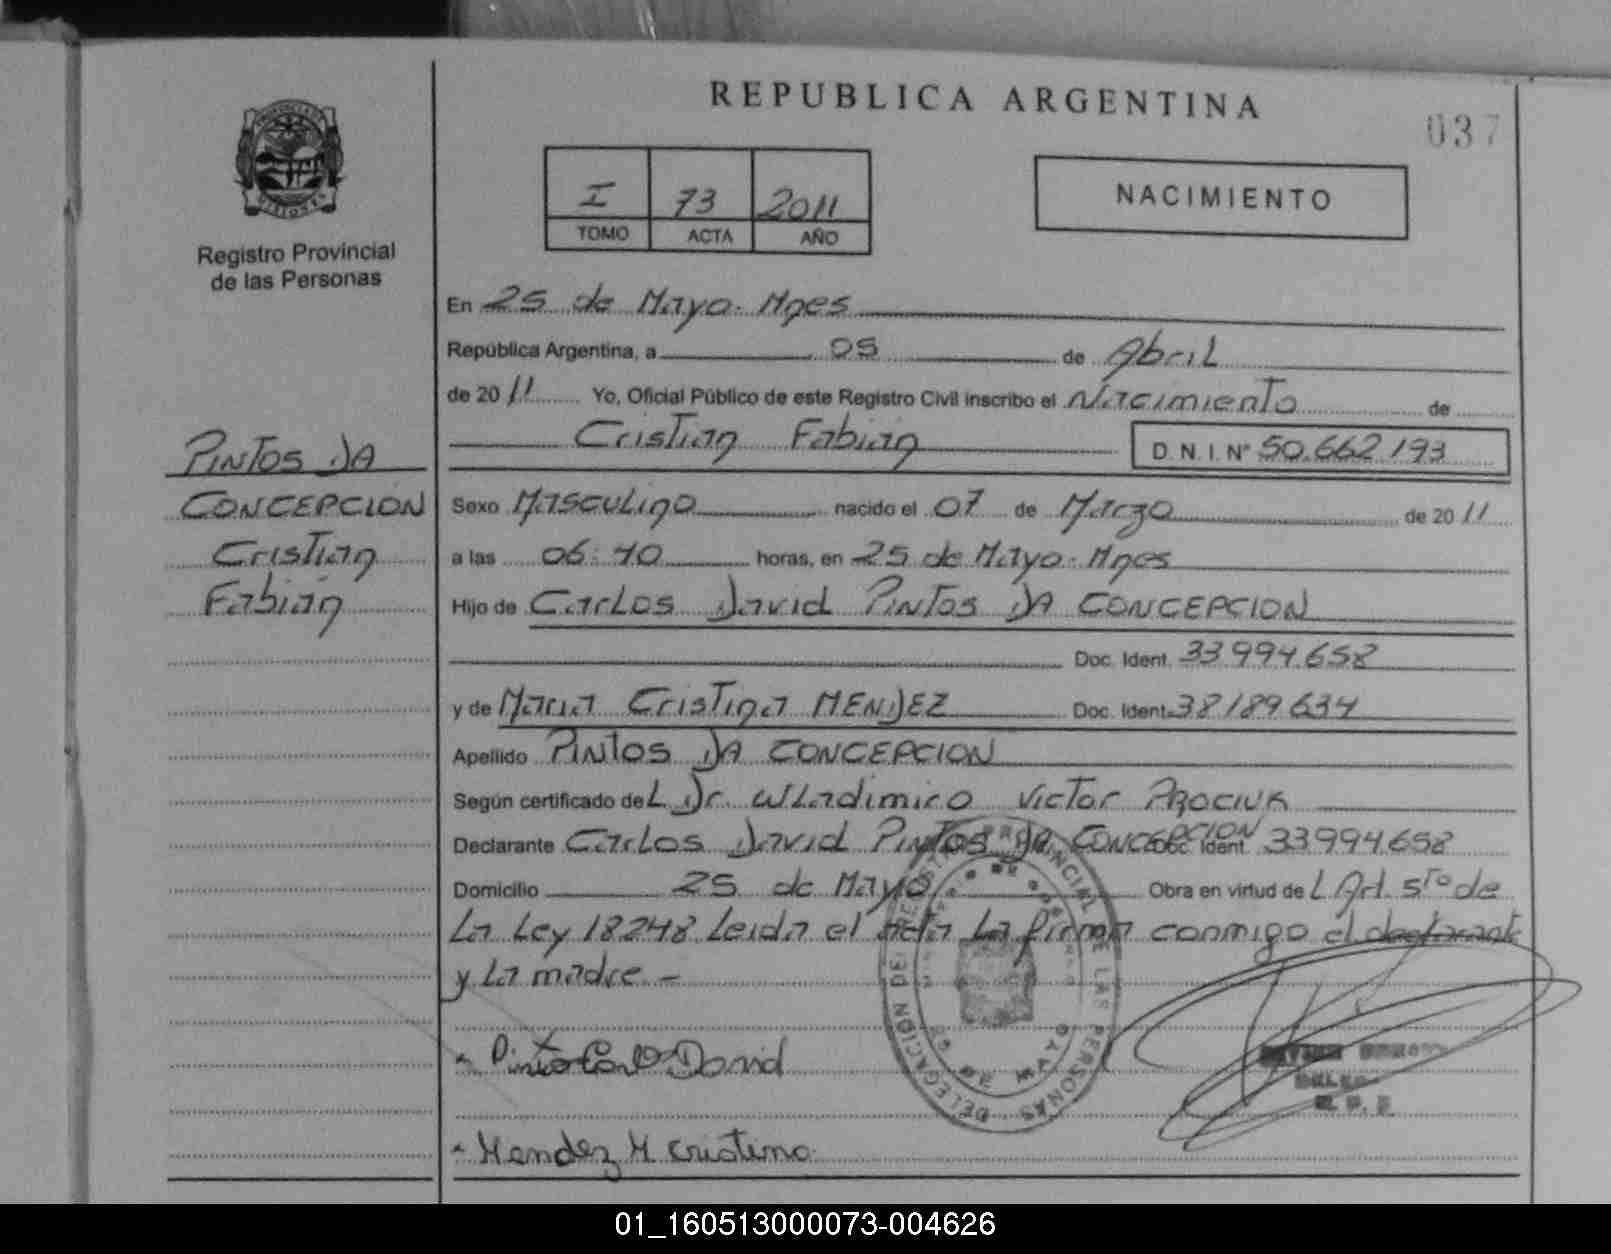 REPUBLICA ARGENTINA
037
Registro Provincial
de las Personas
I 73 2011
TOMO ACTA AÑO
NACIMIENTO
En 25 de Mayo. Mnes
República Argentina, a 05 de Abril
de 2011 Yo, Oficial Público de este Registro Civil inscribo el Nacimiento de
Cristian Fabián D. N. I. Nº 50.662.193
PINTOS DA
CONCEPCION
Cristian
Fabián
Sexo Masculino nacido el 07 de Marzo de 2011
a las 06:10 horas, en 25 de Mayo. Mnes
Hijo de Carlos David PINTOS DA CONCEPCION
Doc. Ident. 33.994.658
y de Maria Cristina MENDEZ Doc. Ident. 38.189.634
Apellido PINTOS DA CONCEPCION
Según certificado del Dr. Wladimiro Victor
Declarante Carlos David PINTOS DA CONCEPCION Doc. Ident. 33994.658
Domicilio 25 de Mayo Obra en virtud de L Art. 5to de
La Ley 18.248 Leida el acta La firman conmigo el declarante
y La madre.-
DELEGACIÓN DEL REGISTRO PROVINCIAL DE LAS PERSONAS
DE MAYO
Pinto Carlo David
Mendez M Cristina
01_160513000073-004626